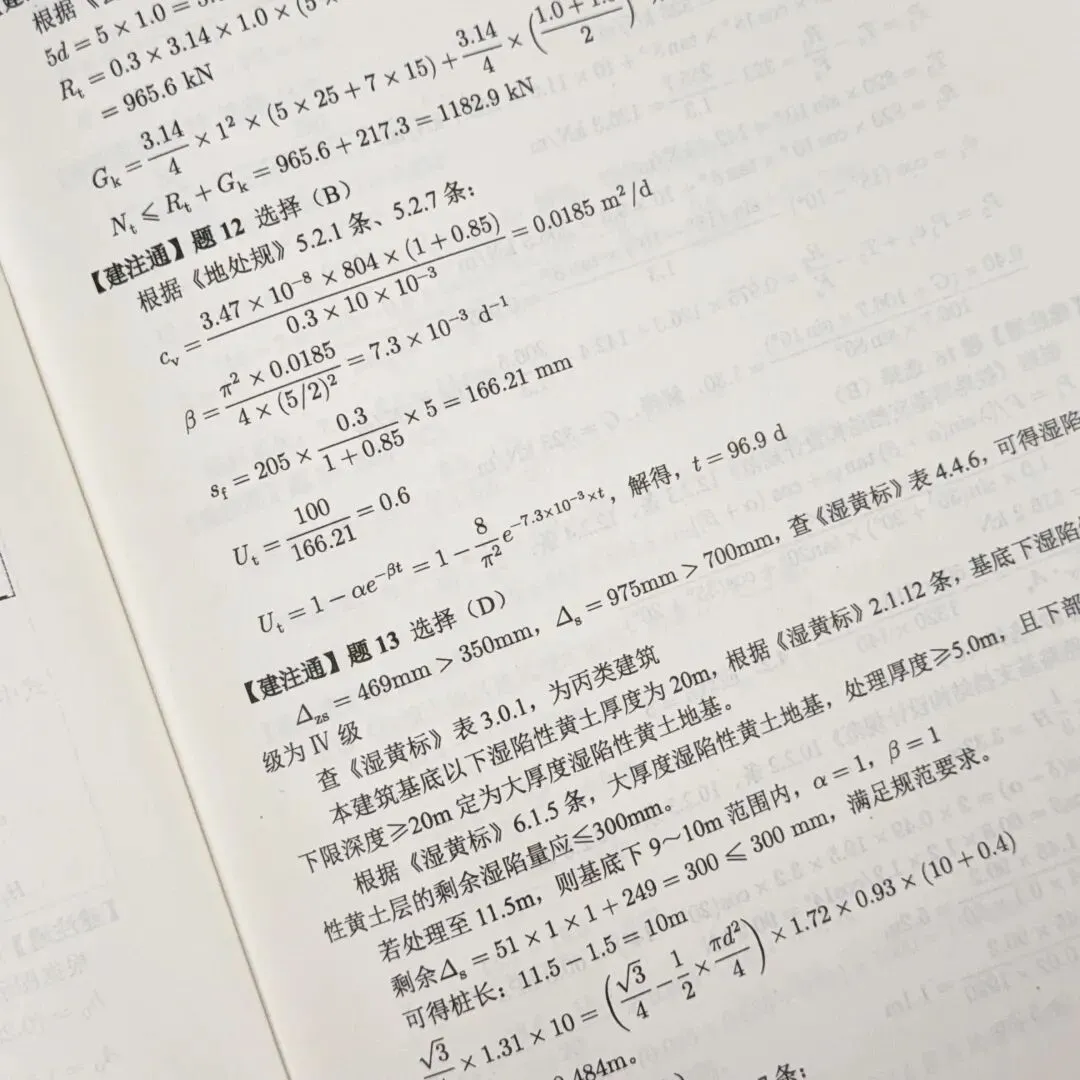 根据《
5d = 5 × 1.0 = 5.
R_t = 0.3 × 3.14 × 1.0 × (5 × 25 + 7 × 15) + \frac{3.14}{4} × (\frac{1.0 + 1.}{2})
= 965.6 kN
G_k = \frac{3.14}{4} × 1^2 × (5
N_t ≤ R_t + G_k = 965.6 + 217.3 = 1182.9 kN
【建注通】题 12 选择（B）
根据《地处规》5.2.1 条、5.2.7 条：
c_v = \frac{3.47 × 10^{-8} × 804 × (1 + 0.85)}{0.3 × 10 × 10^{-3}} = 0.0185 m^2/d
β = \frac{π^2 × 0.0185}{4 × (5/2)^2} = 7.3 × 10^{-3} d^{-1}
s_f = 205 × \frac{0.3}{1 + 0.85} × 5 = 166.21 mm
U_t = \frac{100}{166.21} = 0.6
U_t = 1 − αe^{−βt} = 1 − \frac{8}{π^2}e^{−7.3×10^{−3}×t}，解得，t = 96.9 d
【建注通】题 13 选择（D）
Δ_{zs} = 469mm > 350mm，Δ_s = 975mm > 700mm，查《湿黄标》表 4.4.6，可得湿陷
级为 Ⅳ 级
查《湿黄标》表 3.0.1，为丙类建筑
本建筑基底以下湿陷性黄土厚度为 20m，根据《湿黄标》2.1.12 条，基底下湿陷
下限深度≥20m 定为大厚度湿陷性黄土地基。
根据《湿黄标》6.1.5 条，大厚度湿陷性黄土地基，处理厚度≥5.0m，且下部
性黄土层的剩余湿陷量应≤300mm。
若处理至 11.5m，则基底下 9～10m 范围内，α = 1，β = 1
剩余Δ_s = 51 × 1 × 1 + 249 = 300 ≤ 300 mm，满足规范要求。
可得桩长：11.5 − 1.5 = 10m
\frac{√3}{4} × 1.31 × 10 = (\frac{√3}{4} − \frac{1}{2} × \frac{πd^2}{4}) × 1.72 × 0.93 × (10 + 0.4)
0.484m。
条：